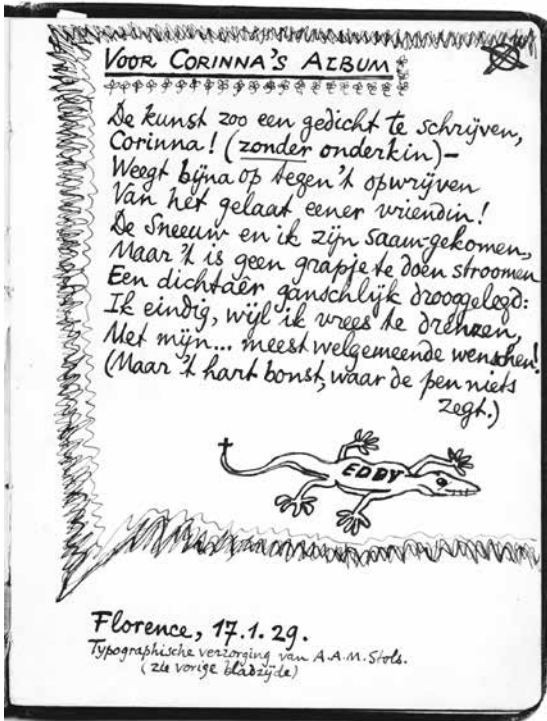 VOOR CORINNA'S ALBUM
De kunst zoo een gedicht te schrijven,
Corinna! (zonder onderkin)—
Weegt bijna op tegen 't opwrijven
Van het gelaat eener vriendin!
De Sneeuw en ik zijn saam-gekomen,
Maar 't is geen grapje te doen stroomen
Een dichtaêr ganschlijk drooggelegd:
Ik eindig, wijl ik vrees te drenzen,
Met mijn... meest welgemeende wenschen!
(Maar 't hart bonst, waar de pen niets
zegt.)
EDDY
Florence, 17.1.29.
Typographische verzorging van A.A.M. Stols.
(zie vorige bladzijde)